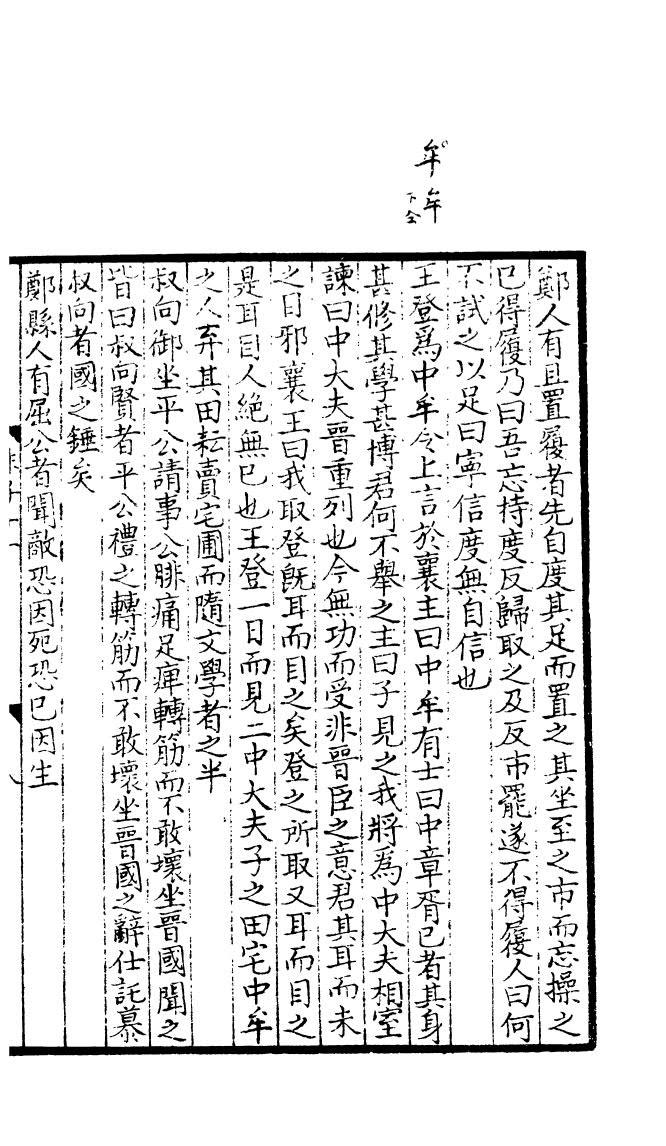 牟 牟
下仝
鄭人有且置履者先自度其足而置之其坐至之市而忘操之
已得履乃曰吾忘持度反歸取之及反市罷遂不得履人曰何
不試之以足曰寧信度無自信也
王登爲中牟令上言於襄主曰中牟有士曰中章胥已者其身
甚修其學甚博君何不舉之主曰子見之我將爲中大夫相室
諫曰中大夫晉重列也今無功而受非晉臣之意君其耳而未
之目邪襄王曰我取登旣耳而目之矣登之所取又耳而目之
是耳目人絶無已也王登一日而見二中大夫子之田宅中牟
之人弃其田耘賣宅圃而隨文學者之半
叔向御坐平公請事公腓痛足痺轉筋而不敢壞坐晉國聞之
皆曰叔向賢者平公禮之轉筋而不敢壞坐晉國之辭仕託慕
叔向者國之錘矣
鄭縣人有屈公者聞敵恐因死恐已因生